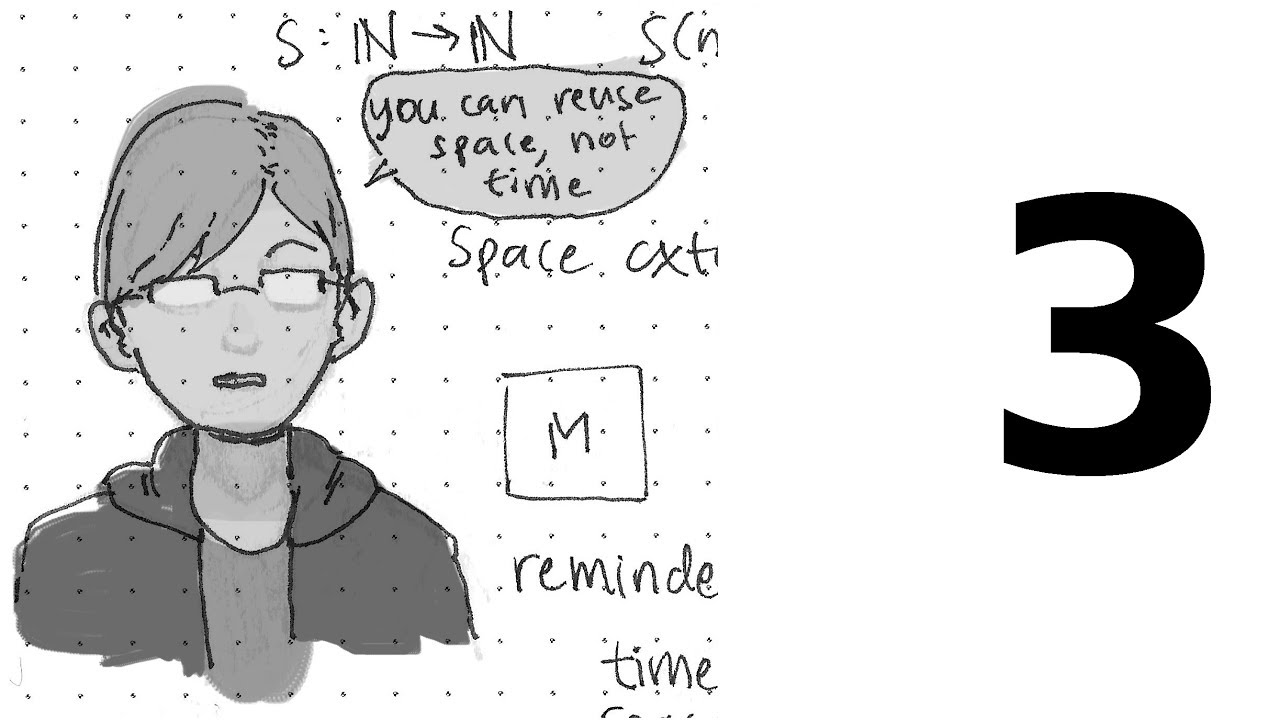 S : ℕ → ℕ S(n
you can reuse
space, not
time
Space
M
reminde
time
3